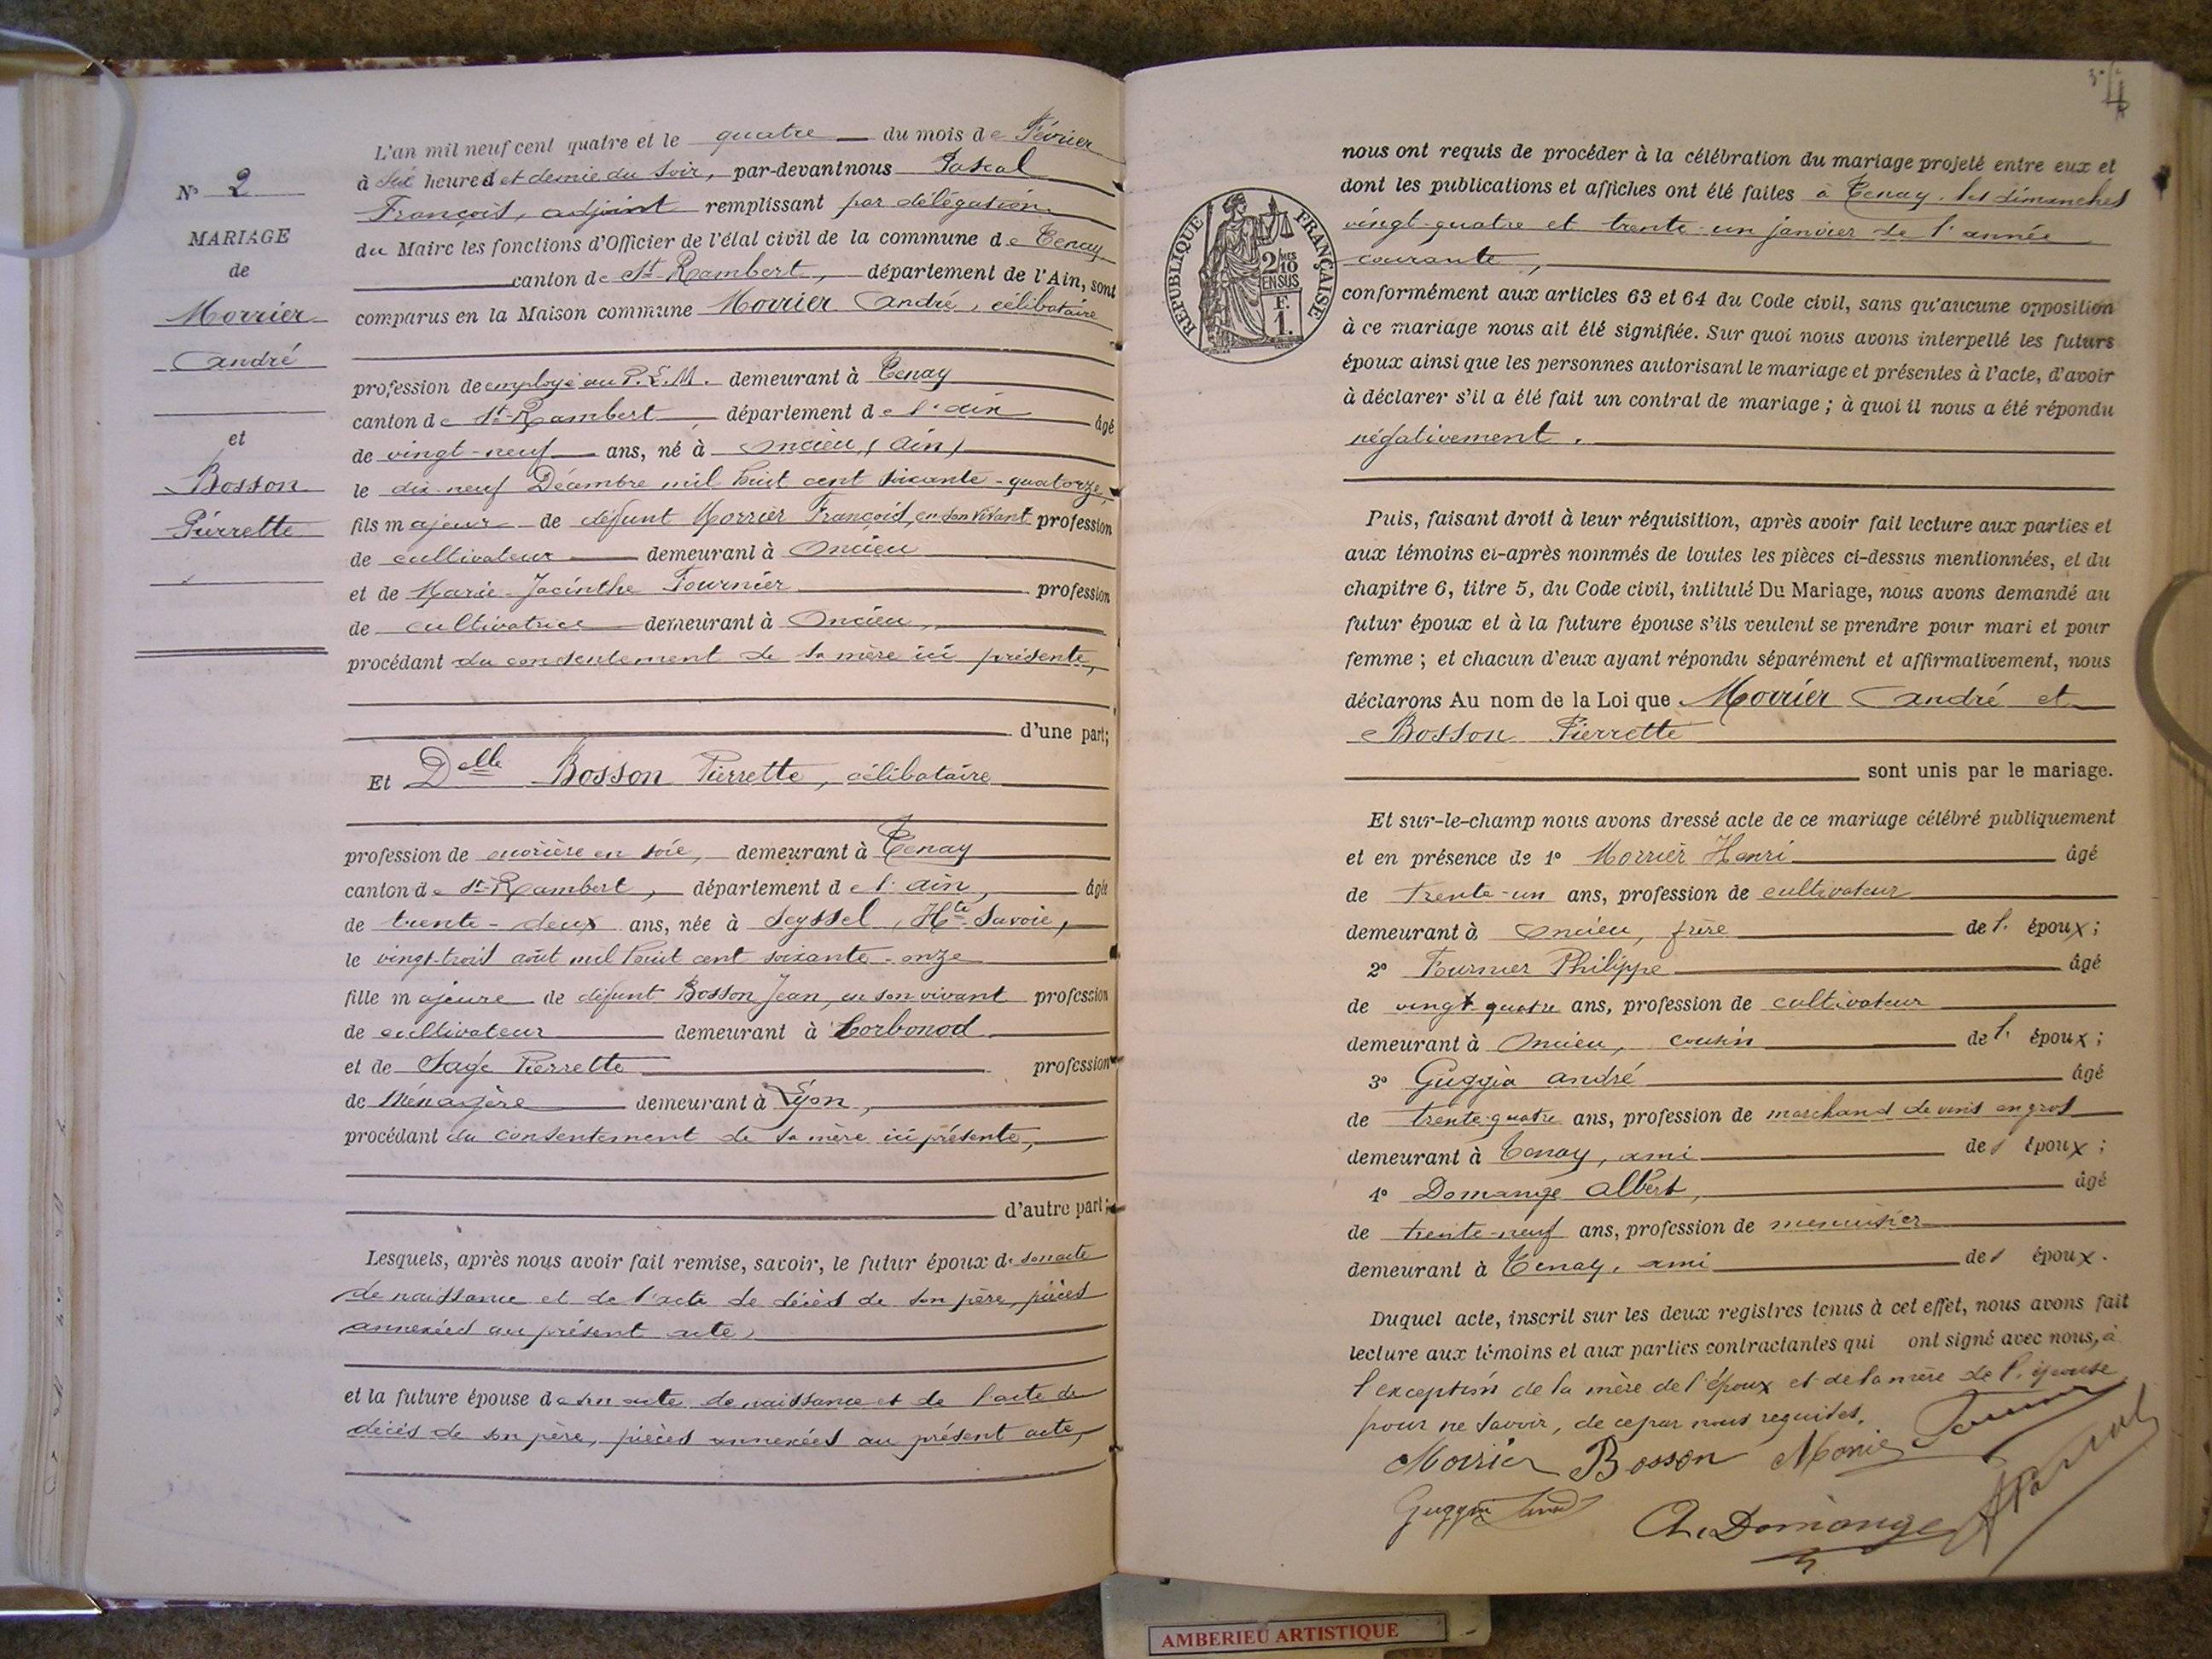 N° 2
MARIAGE
de
Morrier
André
et
Bosson
Pierrette
L'an mil neuf cent quatre et le quatre du mois de Février
à six heures et demie du soir, par-devant nous Pascal
François, adjoint remplissant par délégation
du Maire les fonctions d'Officier de l'état civil de la commune de Tenay
canton de St Rambert, département de l'Ain, sont
comparus en la Maison commune Morrier André, célibataire
profession de employé au P.L.M. demeurant à Tenay
canton de St-Rambert département de l'ain âgé
de vingt-neuf ans, né à Oncieu, (Ain)
le dix-neuf Décembre mil huit cent soixante-quatorze,
fils majeur de défunt Morrier François, en son vivant profession
de cultivateur demeurant à Oncieu
et de Marie Jacinthe Fournier profession
de cultivatrice demeurant à Oncieu,
procédant du consentement de sa mère ici présente,
d'une part;
Et Delle Bosson Pierrette, célibataire
profession de ouvrière en soie, demeurant à Tenay
canton de St-Rambert, département de l'ain, âgée
de trente-deux ans, née à Seyssel, Hte-Savoie,
le vingt-trois août mil huit cent soixante-onze
fille majeure de défunt Bosson Jean, en son vivant profession
de cultivateur demeurant à Corbonod
et de Sage Pierrette profession
de Ménagère demeurant à Lyon,
procédant du consentement de sa mère ici présente,
d'autre part;
Lesquels, après nous avoir fait remise, savoir, le futur époux de son acte
de naissance et de l'acte de décès de son père, pièces
annexées au présent acte,
et la future épouse de son acte de naissance et de l'acte de
décès de son père, pièces annexées au présent acte,
4
RÉPUBLIQUE FRANÇAISE
2/10 MES
EN SUS
F.
1.
nous ont requis de procéder à la célébration du mariage projeté entre eux et
dont les publications et affiches ont été faites à Tenay les dimanches
vingt-quatre et trente-un janvier de l'année
courante,
conformément aux articles 63 et 64 du Code civil, sans qu'aucune opposition
à ce mariage nous ait été signifiée. Sur quoi nous avons interpellé les futurs
époux ainsi que les personnes autorisant le mariage et présentes à l'acte, d'avoir
à déclarer s'il a été fait un contrat de mariage ; à quoi il nous a été répondu
négativement.
Puis, faisant droit à leur réquisition, après avoir fait lecture aux parties et
aux témoins ci-après nommés de toutes les pièces ci-dessus mentionnées, et du
chapitre 6, titre 5, du Code civil, intitulé Du Mariage, nous avons demandé au
futur époux et à la future épouse s'ils veulent se prendre pour mari et pour
femme ; et chacun d'eux ayant répondu séparément et affirmativement, nous
déclarons Au nom de la Loi que Morrier André et
Bosson Pierrette
sont unis par le mariage.
Et sur-le-champ nous avons dressé acte de ce mariage célébré publiquement
et en présence de 1° Morrier Henri âgé
de trente-un ans, profession de cultivateur
demeurant à Oncieu, frère de l' époux ;
2° Fournier Philippe âgé
de vingt quatre ans, profession de cultivateur
demeurant à Oncieu, cousin de l' époux ;
3° Guggia André âgé
de trente-quatre ans, profession de marchand de vins en gros
demeurant à Tenay, ami de l' époux ;
4° Domange Albert, âgé
de trente-neuf ans, profession de menuisier
demeurant à Tenay, ami de l' époux.
Duquel acte, inscrit sur les deux registres tenus à cet effet, nous avons fait
lecture aux témoins et aux parties contractantes qui ont signé avec nous, à
l'exception de la mère de l'époux et de la mère de l'épouse
pour ne savoir, de ce par nous requises.
Morrier Bosson
Guggia A. Domange
AMBERIEU ARTISTIQUE